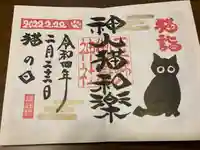 猫詣
神山猫和楽
2022.2.22
令和四年
二月二十二日
猫の日